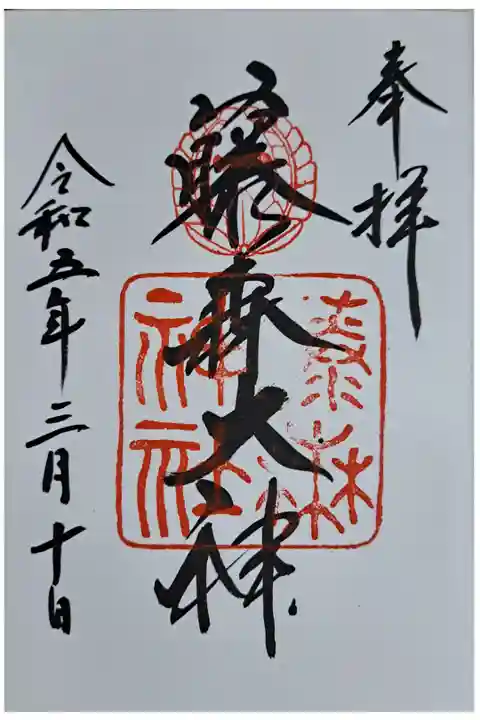 奉拝
藤森大神
藤森神社
令和五年三月十日